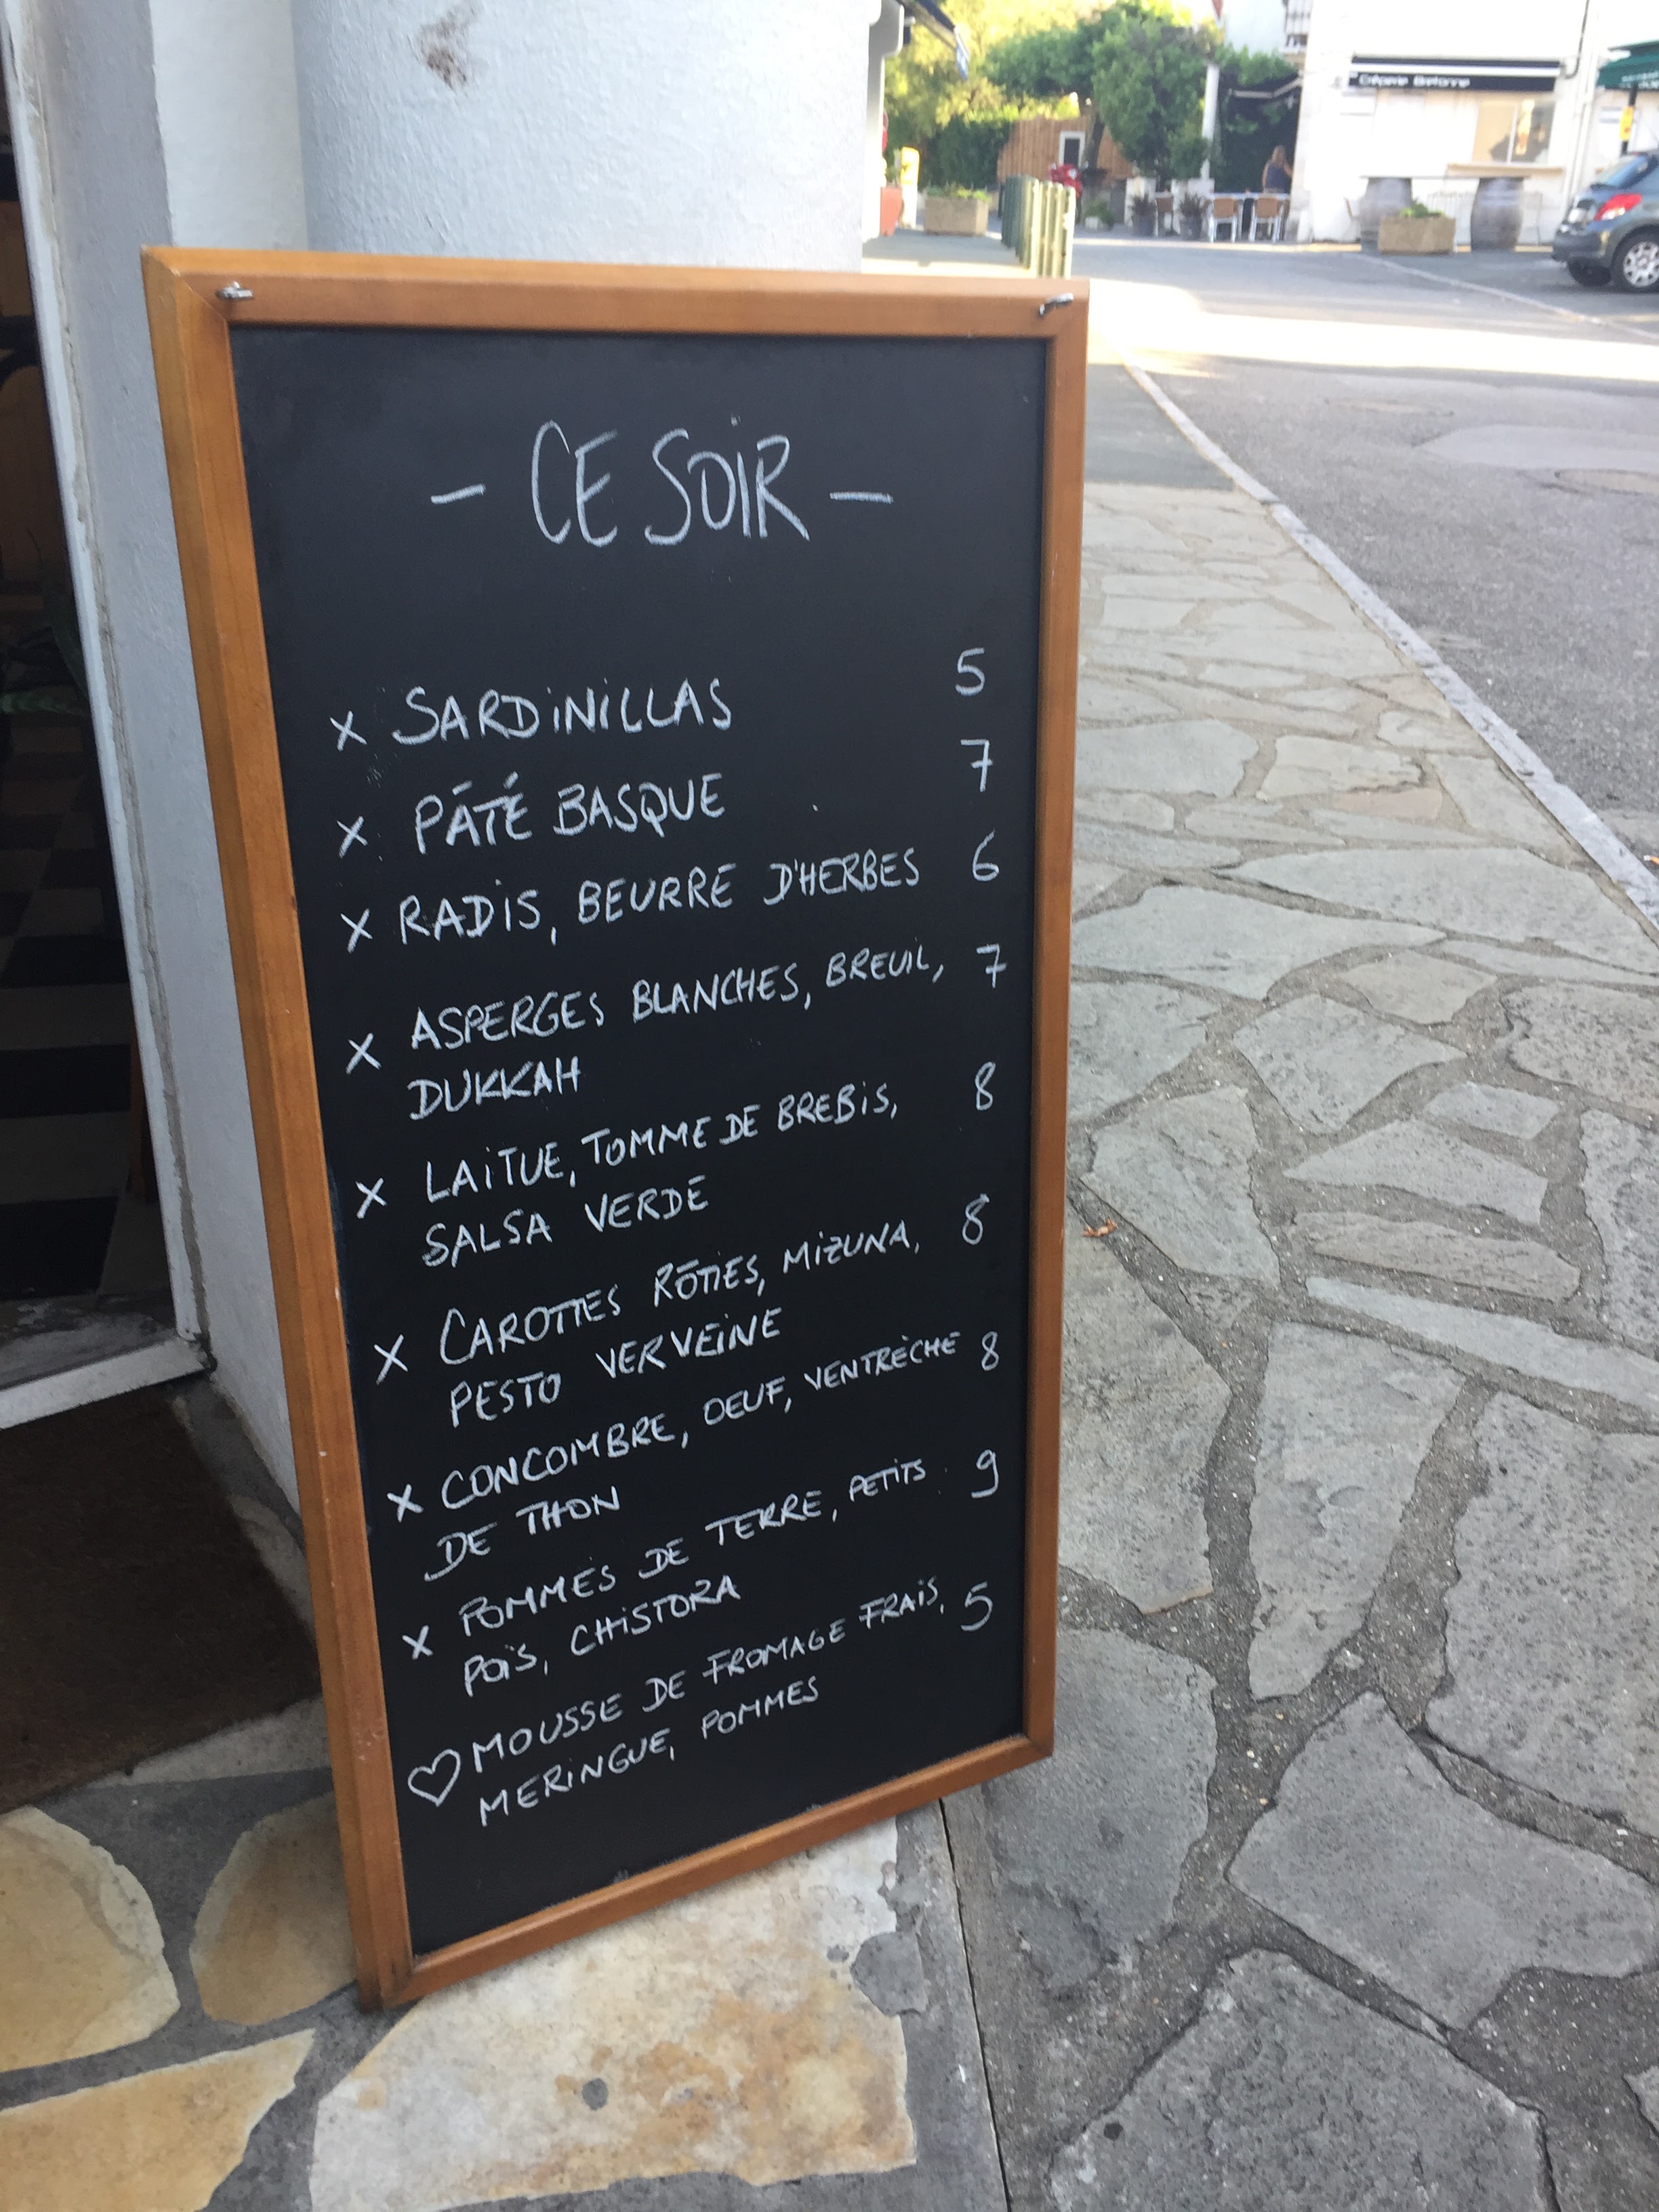 Crêperie Bretonne
- CE SOIR -
x SARDINILLAS 5
x PÂTÉ BASQUE 7
x RADIS, BEURRE D'HERBES 6
x ASPERGES BLANCHES, BREUIL, 7
DUKKAH
x LAITUE, TOMME DE BREBIS, 8
SALSA VERDE
x CAROTTES RÔTIES, MIZUNA, 8
PESTO VERVEINE
x CONCOMBRE, OEUF, VENTRÈCHE 8
DE THON
x POMMES DE TERRE, PETITS 9
POIS, CHISTORA
♡ MOUSSE DE FROMAGE FRAIS, 5
MERINGUE, POMMES